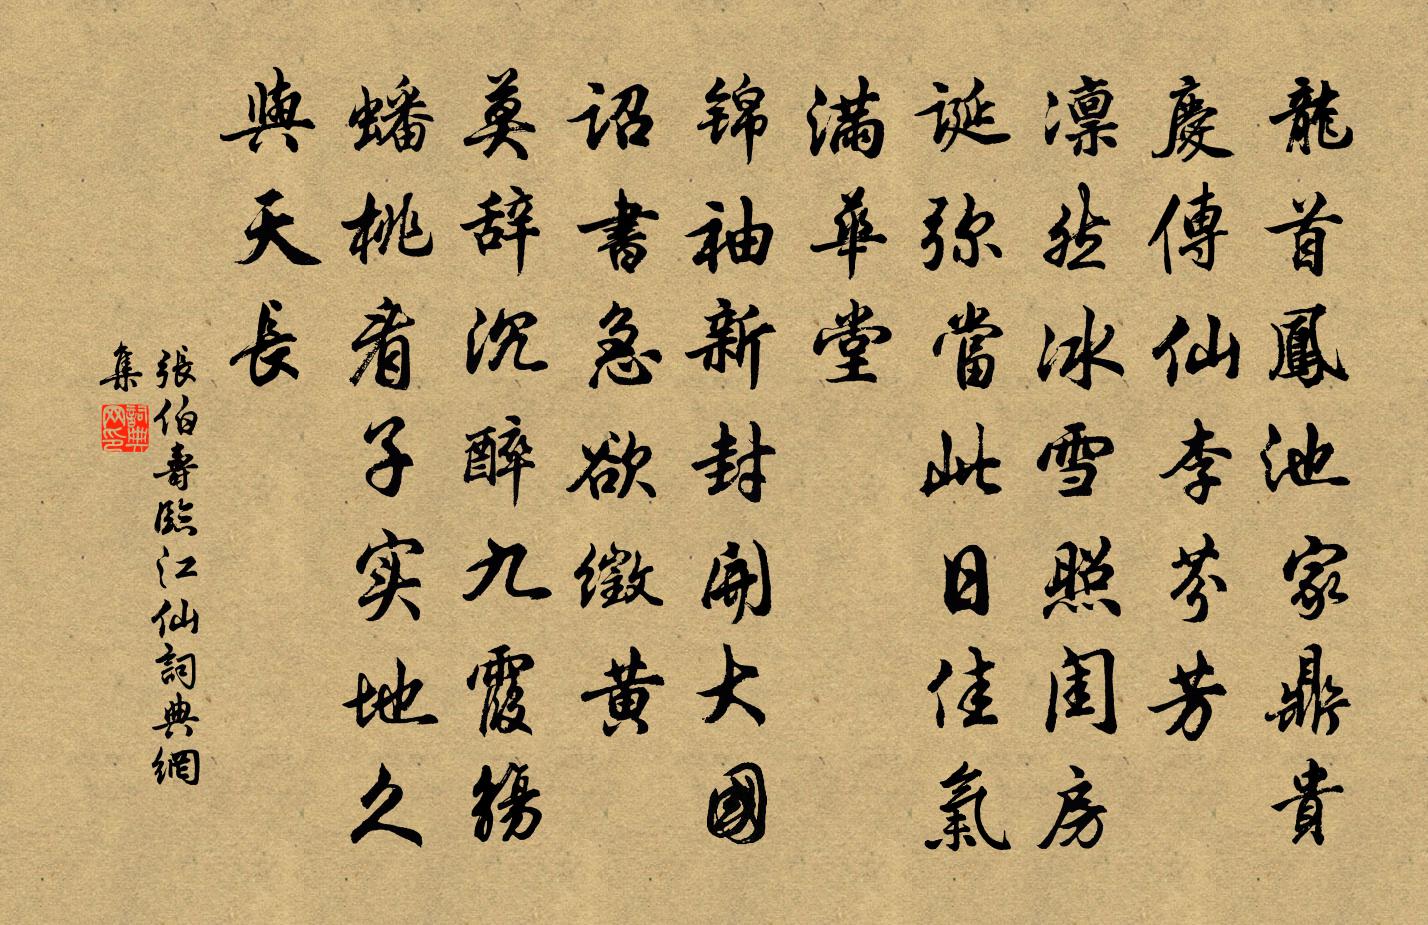 龍首鳳池家鼎貴
慶傳仙李芬芳
凛然冰雪照閨房
誕弥當此日佳氣
滿華堂
錦袖新封開大國
詔書急欲徵黄
莫辞沉醉九霞觴
蟠桃看子实地久
與天長
張伯壽臨江仙詞典網
集
詞典網印